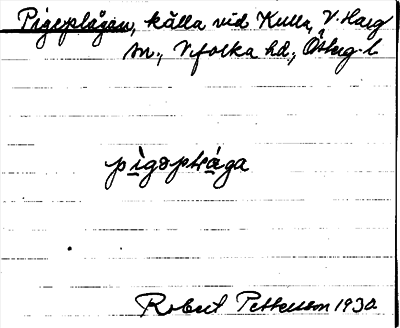 Pigeplågan, källa vid Kulla, V. Harg
sn., Vifolka hd., Österg. l
pìgəpɬága
Robert Pettersson 1930